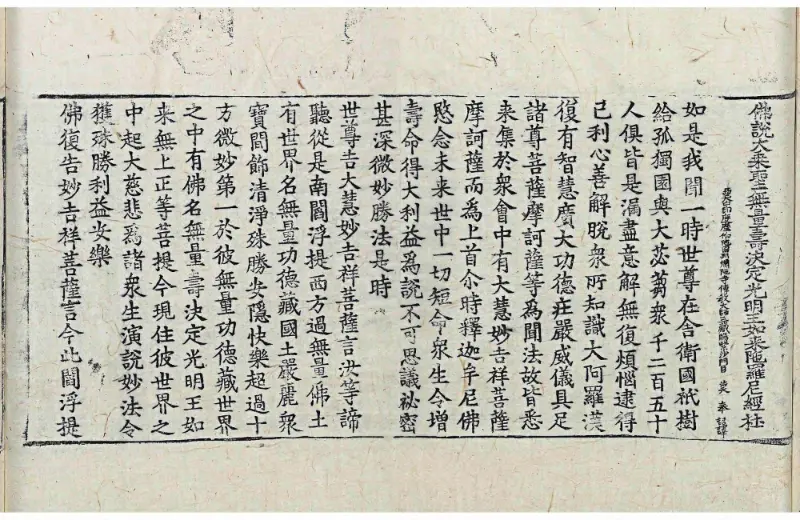 佛說大乘聖無量壽決定光明王如來陁羅尼經杜
印度摩伽陁國那爛陁寺傳教大師三藏賜紫沙門臣 奉 詔譯
如是我聞一時世尊在舍衛國祇樹
給孤獨園與大苾蒭衆千二百五十
人俱皆是漏盡意解無復煩惱逮得
己利心善解脫衆所知識大阿羅漢
復有智慧廣大功德莊嚴威儀具足
諸尊菩薩摩訶薩等爲聞法故皆悉
來集於衆會中有大慧妙吉祥菩薩
摩訶薩而爲上首尒時釋迦牟尼佛
愍念未來世中一切短命衆生令增
壽命得大利益爲說不可思議祕密
甚深微妙勝法是時
世尊告大慧妙吉祥菩薩言汝等諦
聽從是南閻浮提西方過無量佛土
有世界名無量功德藏國土嚴麗衆
寶間飾清淨殊勝安隱快樂超過十
方微妙第一於彼無量功德藏世界
之中有佛名無量壽決定光明王如
來無上正等菩提今現住彼世界之
中起大慈悲爲諸衆生演說妙法令
獲殊勝利益安樂
佛復告妙吉祥菩薩言今此閻浮提